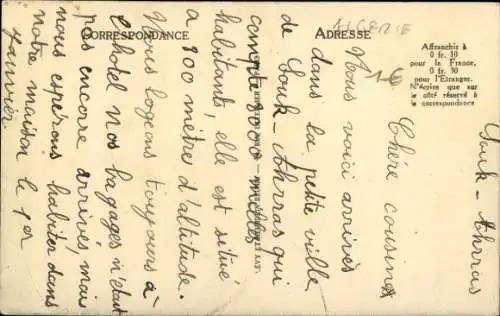 CORRESPONDANCE
ADRESSE
ALGERIE
Affranchir à
0 fr. 10
pour la France,
0 fr. 90
pour l'Etranger.
N'écrire que sur
le côté réservé à
la correspondance
1€
Souk-Ahrras
Chère cousine
Nous voici arrivés
dans la petite ville
de Souk-Ahrras qui
compte 8000 milles
habitants, elle est situé
a 800 mètre d'altitude.
Nous logeons toujours à
l'hotel nos bagages n'étant
pas encore arrivés, mais
nous espérons habiter dans
notre maison le 1er
janvier.